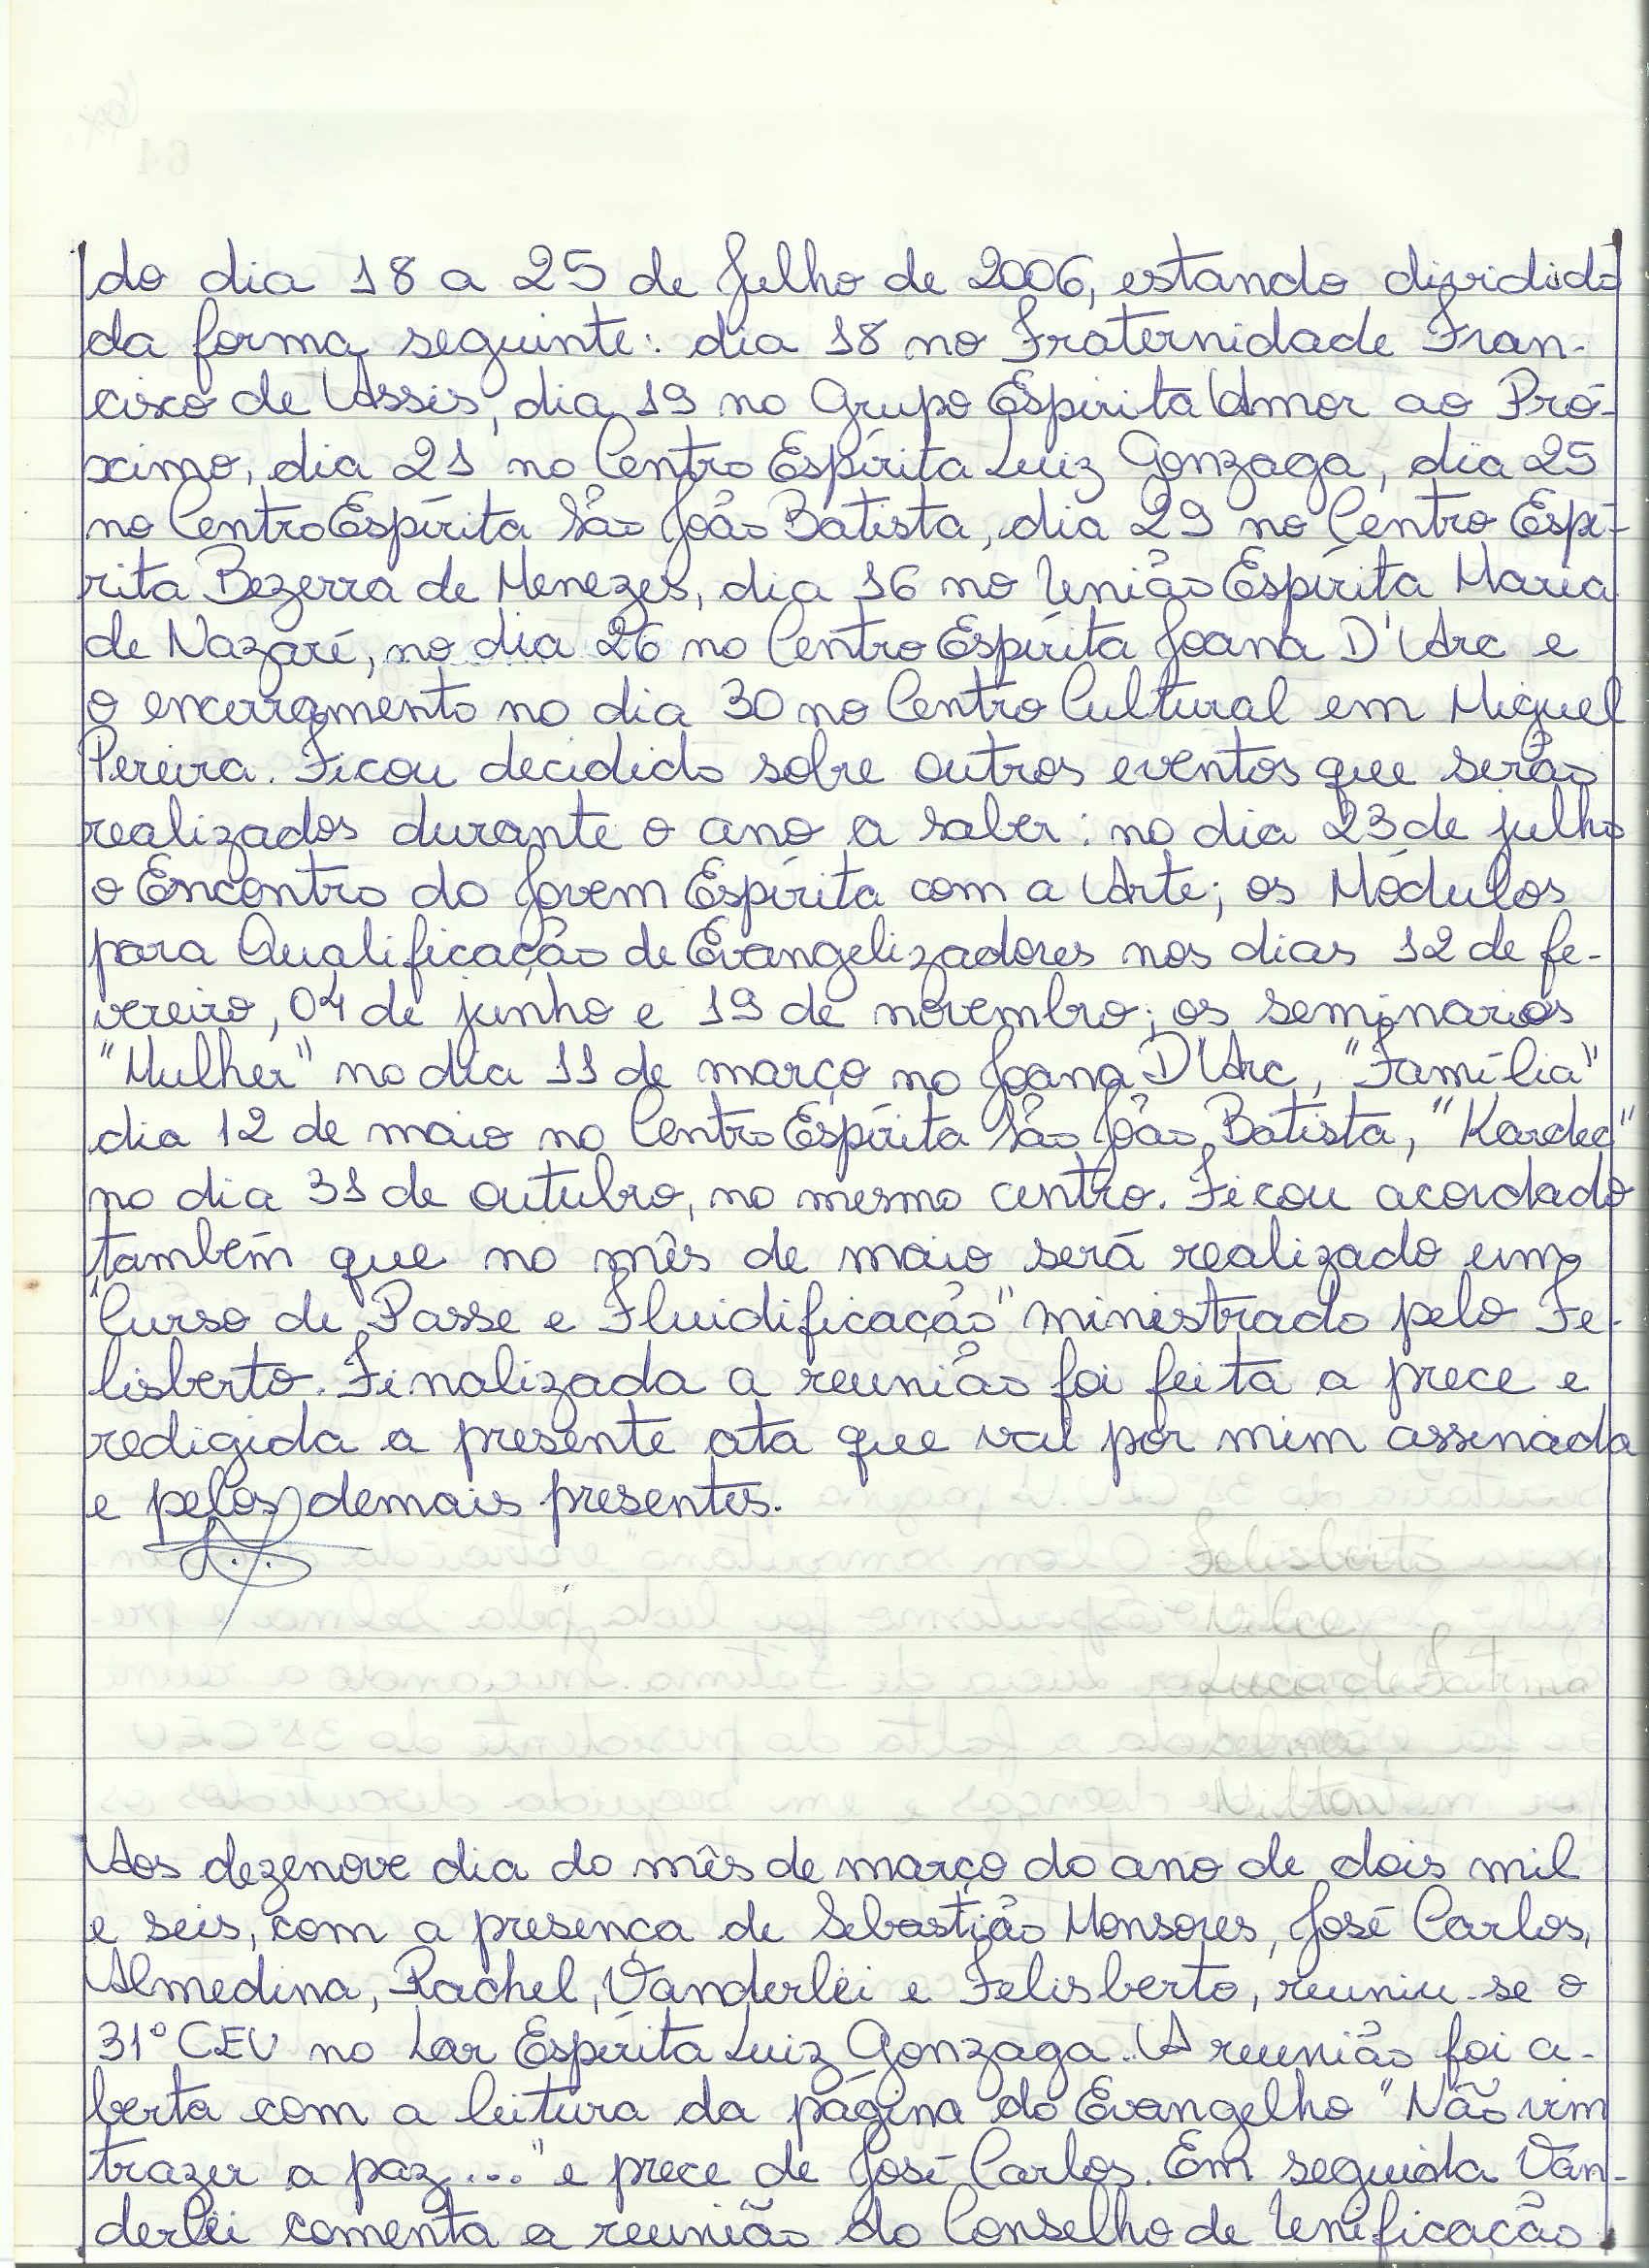 do dia 18 a 25 de Julho de 2006, estando dividido
da forma seguinte: dia 18 no Fraternidade Fran-
cisco de Assis, dia 19 no Grupo Espírita Amor ao Pró-
ximo, dia 21 no Centro Espírita Luiz Gonzaga, dia 25
no Centro Espírita São João Batista, dia 29 no Centro Espí-
rita Bezerra de Menezes, dia 16 no União Espírita Maria
de Nazaré, no dia 26 no Centro Espírita Joana D'Arc e
o encerramento no dia 30 no Centro Cultural em Miguel
Pereira. Ficou decidido sobre outros eventos que serão
realizados durante o ano a saber: no dia 23 de julho
o Encontro do Jovem Espírita com a Arte; os Módulos
para Qualificação de Evangelizadores nos dias 12 de fe-
vereiro, 04 de junho e 19 de novembro; os seminários
"Mulher" no dia 11 de março no Joana D'Arc, "Família"
dia 12 de maio no Centro Espírita São João Batista, "Kardec"
no dia 31 de outubro, no mesmo centro. Ficou acordado
também que no mês de maio será realizado um
"Curso de Passe e Fluidificação" ministrado pelo Fe-
lisberto. Finalizada a reunião foi feita a prece e
redigida a presente ata que vai por mim assinada
e pelos demais presentes.
Aos dezenove dia do mês de março do ano de dois mil
e seis, com a presença de Sebastião Monsores, José Carlos,
Almedina, Rachel, Vanderléi e Felisberto, reuniu-se o
31º CEU no Lar Espírita Luiz Gonzaga. A reunião foi a-
berta com a leitura da página do Evangelho "Não vim
trazer a paz..." e prece de José Carlos. Em seguida Van-
derléi comenta a reunião do Conselho de Unificação